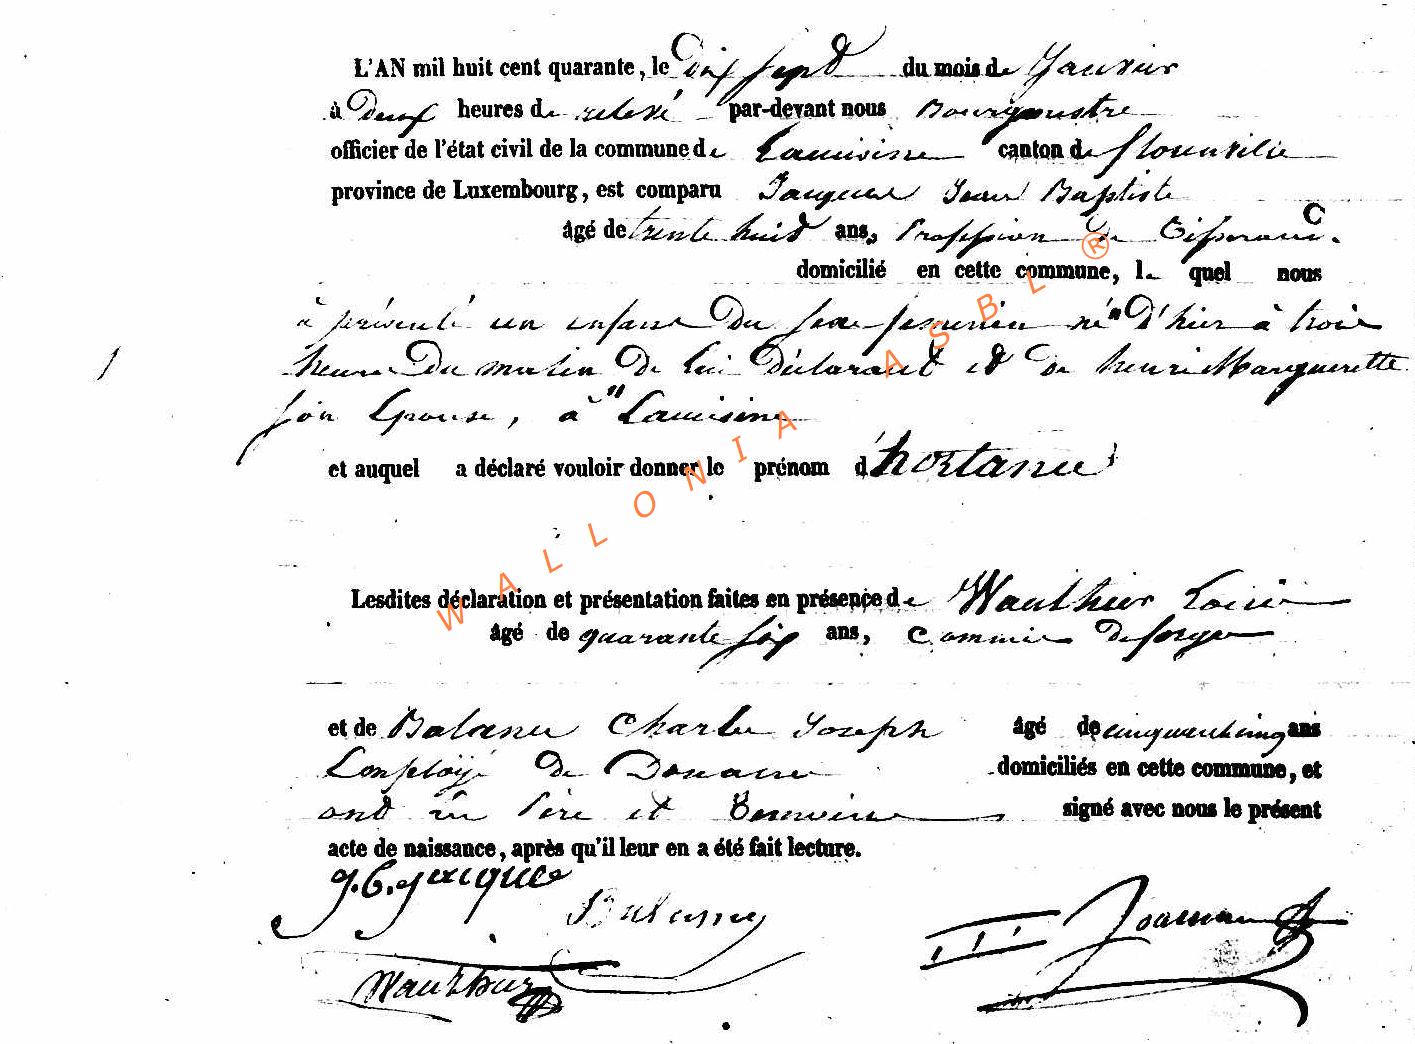 L'AN mil huit cent quarante, le dix sept du mois de Janvier
à deux heures de relevé par-devant nous Bourgmestre
officier de l'état civil de la commune de Lacuisine canton de florenville
province de Luxembourg, est comparu Jacques Jean Baptiste
âgé de trente huit ans, Profession de Tisserand
domicilié en cette commune, le quel nous
à présenté un enfant du sexe feminin né d'hier à trois
heures du matin de lui déclarant et de henri Marguerette
son Epouse, à Lacuisine
et auquel a déclaré vouloir donner le prénom d'hortance
1
Lesdites déclaration et présentation faites en présence de Wauthier Louis
âgé de quarante six ans, Commis de forge
et de Balance Charles Joseph âgé de cinquante cinq ans
Employé de Douane domiciliés en cette commune, et
ont les Père et Temoins signé avec nous le présent
acte de naissance, après qu'il leur en a été fait lecture.
J.B. Jacques
Balance
Wauthier
WALLONIA ASBL ®